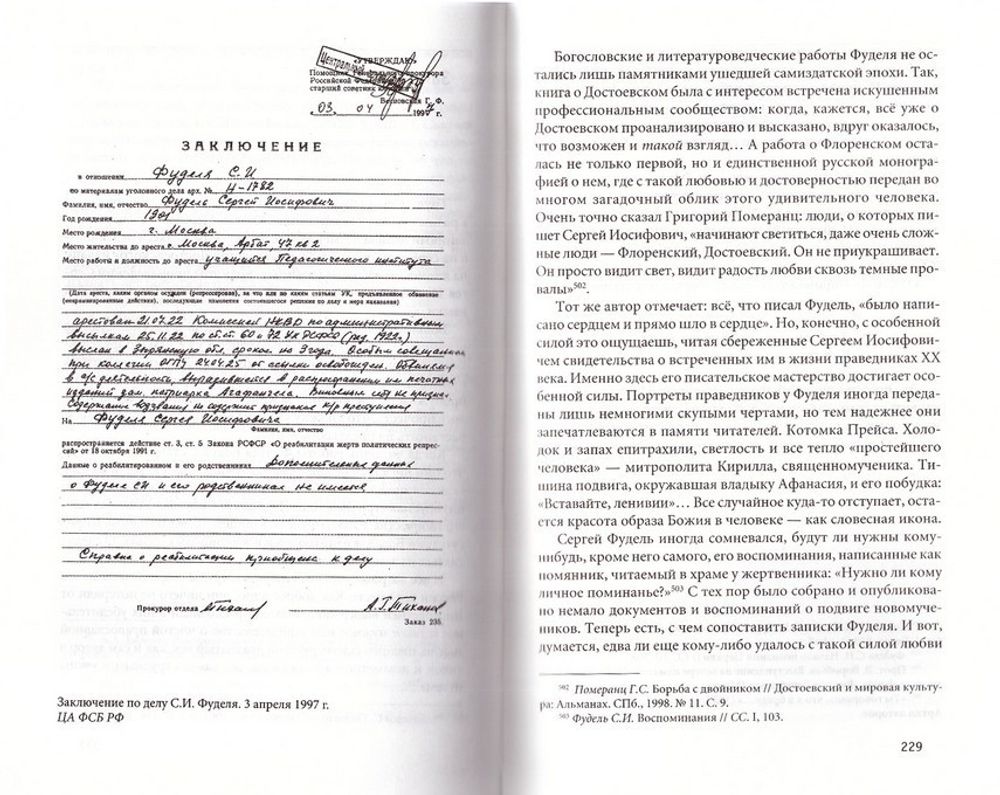 «УТВЕРЖДАЮ»
Центральный
Помощник Генерального прокурора
Российской Федерации
старший советник юстиции
Весновская Г. Ф.
„03. 04 1997 г.
ЗАКЛЮЧЕНИЕ
в отношении Фуделя С.И
по материалам уголовного дела арх. № Н-1782
Фамилия, имя, отчество Фудель Сергей Иосифович
Год рождения 1901
Место рождения г. Москва
Место жительства до ареста г. Москва, Арбат, 47 кв 2
Место работы и должность до ареста учащийся Педагогического института
(Дата ареста, каким органом осужден (репрессирован), за что или по каким статьям УК, предъявленное обвинение
(инкриминированные действия), последующие изменения состоявшегося решения по делу и мера наказания)
арестован 21.07.22 Комиссией НКВД по административным
высылкам 25.11.22 по ст.ст. 60 и 72 УК РСФСР (ред. 1922г.)
выслан в Зырянскую обл. сроком на 3 года. Особым совещанием
при коллегии ОГПУ 24.04.25 от ссылки освобожден. Обвинялся
в а/с деятельности, выразившейся в распространении им печатных
изданий зам. патриарха Агафангела. Виновным себя не признал.
Содержание воззвания не содержит признаков к/р преступления
На Фуделя Сергея Иосифовича
Фамилия, имя, отчество
распространяется действие ст. 3, ст. 5 Закона РСФСР «О реабилитации жертв политических репрес-
сий» от 18 октября 1991 г.
Данные о реабилитированном и его родственниках Дополнительных данных
о Фуделе СИ и его родственниках не имеется
Справка о реабилитации приобщена к делу
Прокурор отдела А.Г.Тиханов
Заказ 235
Заключение по делу С.И. Фуделя. 3 апреля 1997 г.
ЦА ФСБ РФ
Богословские и литературоведческие работы Фуделя не ос-
тались лишь памятниками ушедшей самиздатской эпохи. Так,
книга о Достоевском была с интересом встречена искушенным
профессиональным сообществом: когда, кажется, всё уже о
Достоевском проанализировано и высказано, вдруг оказалось,
что возможен и такой взгляд… А работа о Флоренском оста-
лась не только первой, но и единственной русской моногра-
фией о нем, где с такой любовью и достоверностью передан во
многом загадочный облик этого удивительного человека.
Очень точно сказал Григорий Померанц: люди, о которых пи-
шет Сергей Иосифович, «начинают светиться, даже очень слож-
ные люди — Флоренский, Достоевский. Он не приукрашивает.
Он просто видит свет, видит радость любви сквозь темные про-
валы»502.
Тот же автор отмечает: всё, что писал Фудель, «было напи-
сано сердцем и прямо шло в сердце». Но, конечно, с особенной
силой это ощущаешь, читая сбереженные Сергеем Иосифови-
чем свидетельства о встреченных им в жизни праведниках XX
века. Именно здесь его писательское мастерство достигает осо-
бенной силы. Портреты праведников у Фуделя иногда переда-
ны лишь немногими скупыми чертами, но тем надежнее они
запечатлеваются в памяти читателей. Котомка Прейса. Холо-
док и запах епитрахили, светлость и все тепло «простейшего
человека» — митрополита Кирилла, священномученика. Ти-
шина подвига, окружавшая владыку Афанасия, и его побудка:
«Вставайте, ленивии»… Все случайное куда-то отступает, оста-
ется красота образа Божия в человеке — как словесная икона.
Сергей Фудель иногда сомневался, будут ли нужны кому-
нибудь, кроме него самого, его воспоминания, написанные как
помянник, читаемый в храме у жертвенника: «Нужно ли кому
личное поминанье?»503 С тех пор было собрано и опубликова-
но немало документов и воспоминаний о подвиге новомуче-
ников. Теперь есть, с чем сопоставить записки Фуделя. И вот,
думается, едва ли еще кому-либо удалось с такой силой любви
502 Померанц Г.С. Борьба с двойником // Достоевский и мировая культу-
ра: Альманах. СПб., 1998. № 11. С. 9.
503 Фудель С.И. Воспоминания // СС. I, 103.
229